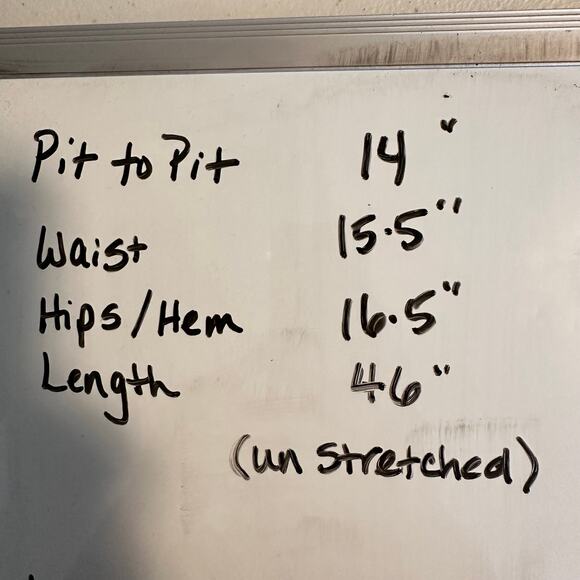 Pit to Pit 14"
Waist 15.5"
Hips/Hem 16.5"
Length 46"
(un stretched)